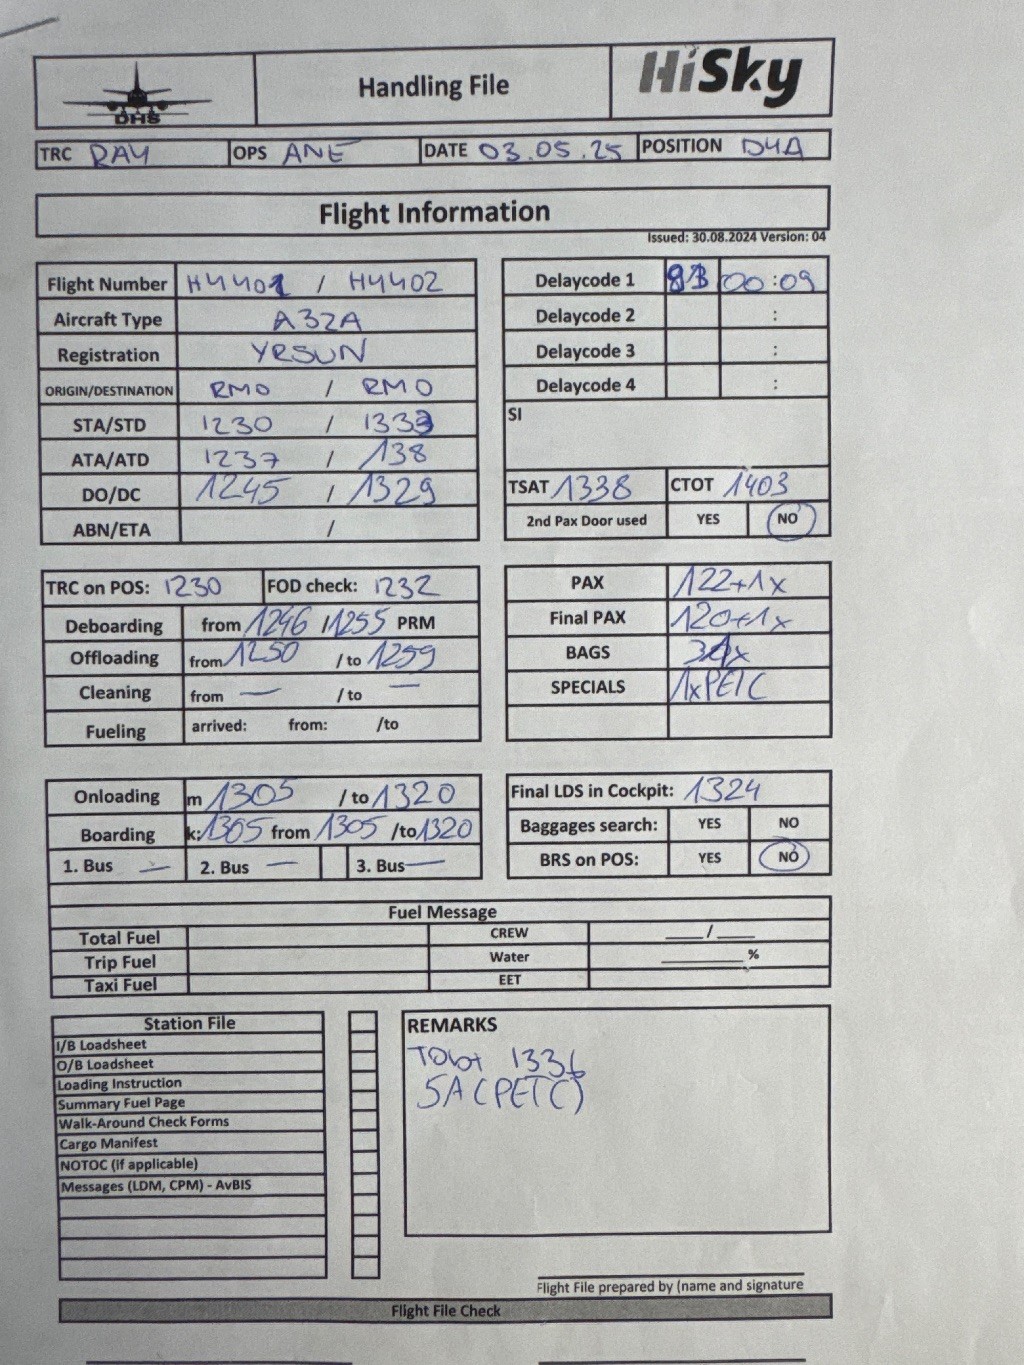 DHS
Handling File
HiSky
TRC RAY OPS ANE DATE 03.05.25 POSITION D4A
Flight Information
Issued: 30.08.2024 Version: 04
Flight Number H4401 / H4402
Aircraft Type A32A
Registration YRSUN
ORIGIN/DESTINATION RMO / RMO
STA/STD 1230 / 1333
ATA/ATD 1237 / 138
DO/DC 1245 / 1329
ABN/ETA /
Delaycode 1 00:09
Delaycode 2 :
Delaycode 3 :
Delaycode 4 :
SI
TSAT 1338 CTOT 1403
2nd Pax Door used YES NO
TRC on POS: 1230 FOD check: 1232
Deboarding from 1246 / 1255 PRM
Offloading from 1250 / to 1259
Cleaning from — / to —
Fueling arrived: from: /to
PAX 122+1x
Final PAX 120+1x
BAGS
SPECIALS 1xPETC
Onloading m 1305 / to 1320
Boarding k: 1305 from 1305 /to 1320
1. Bus — 2. Bus — 3. Bus —
Final LDS in Cockpit: 1324
Baggages search: YES NO
BRS on POS: YES NO
Fuel Message
Total Fuel CREW ___/___
Trip Fuel Water ______%
Taxi Fuel EET
Station File
I/B Loadsheet
O/B Loadsheet
Loading Instruction
Summary Fuel Page
Walk-Around Check Forms
Cargo Manifest
NOTOC (if applicable)
Messages (LDM, CPM) - AvBIS
REMARKS
Tobt 1336
5A (PETC)
Flight File prepared by (name and signature
Flight File Check